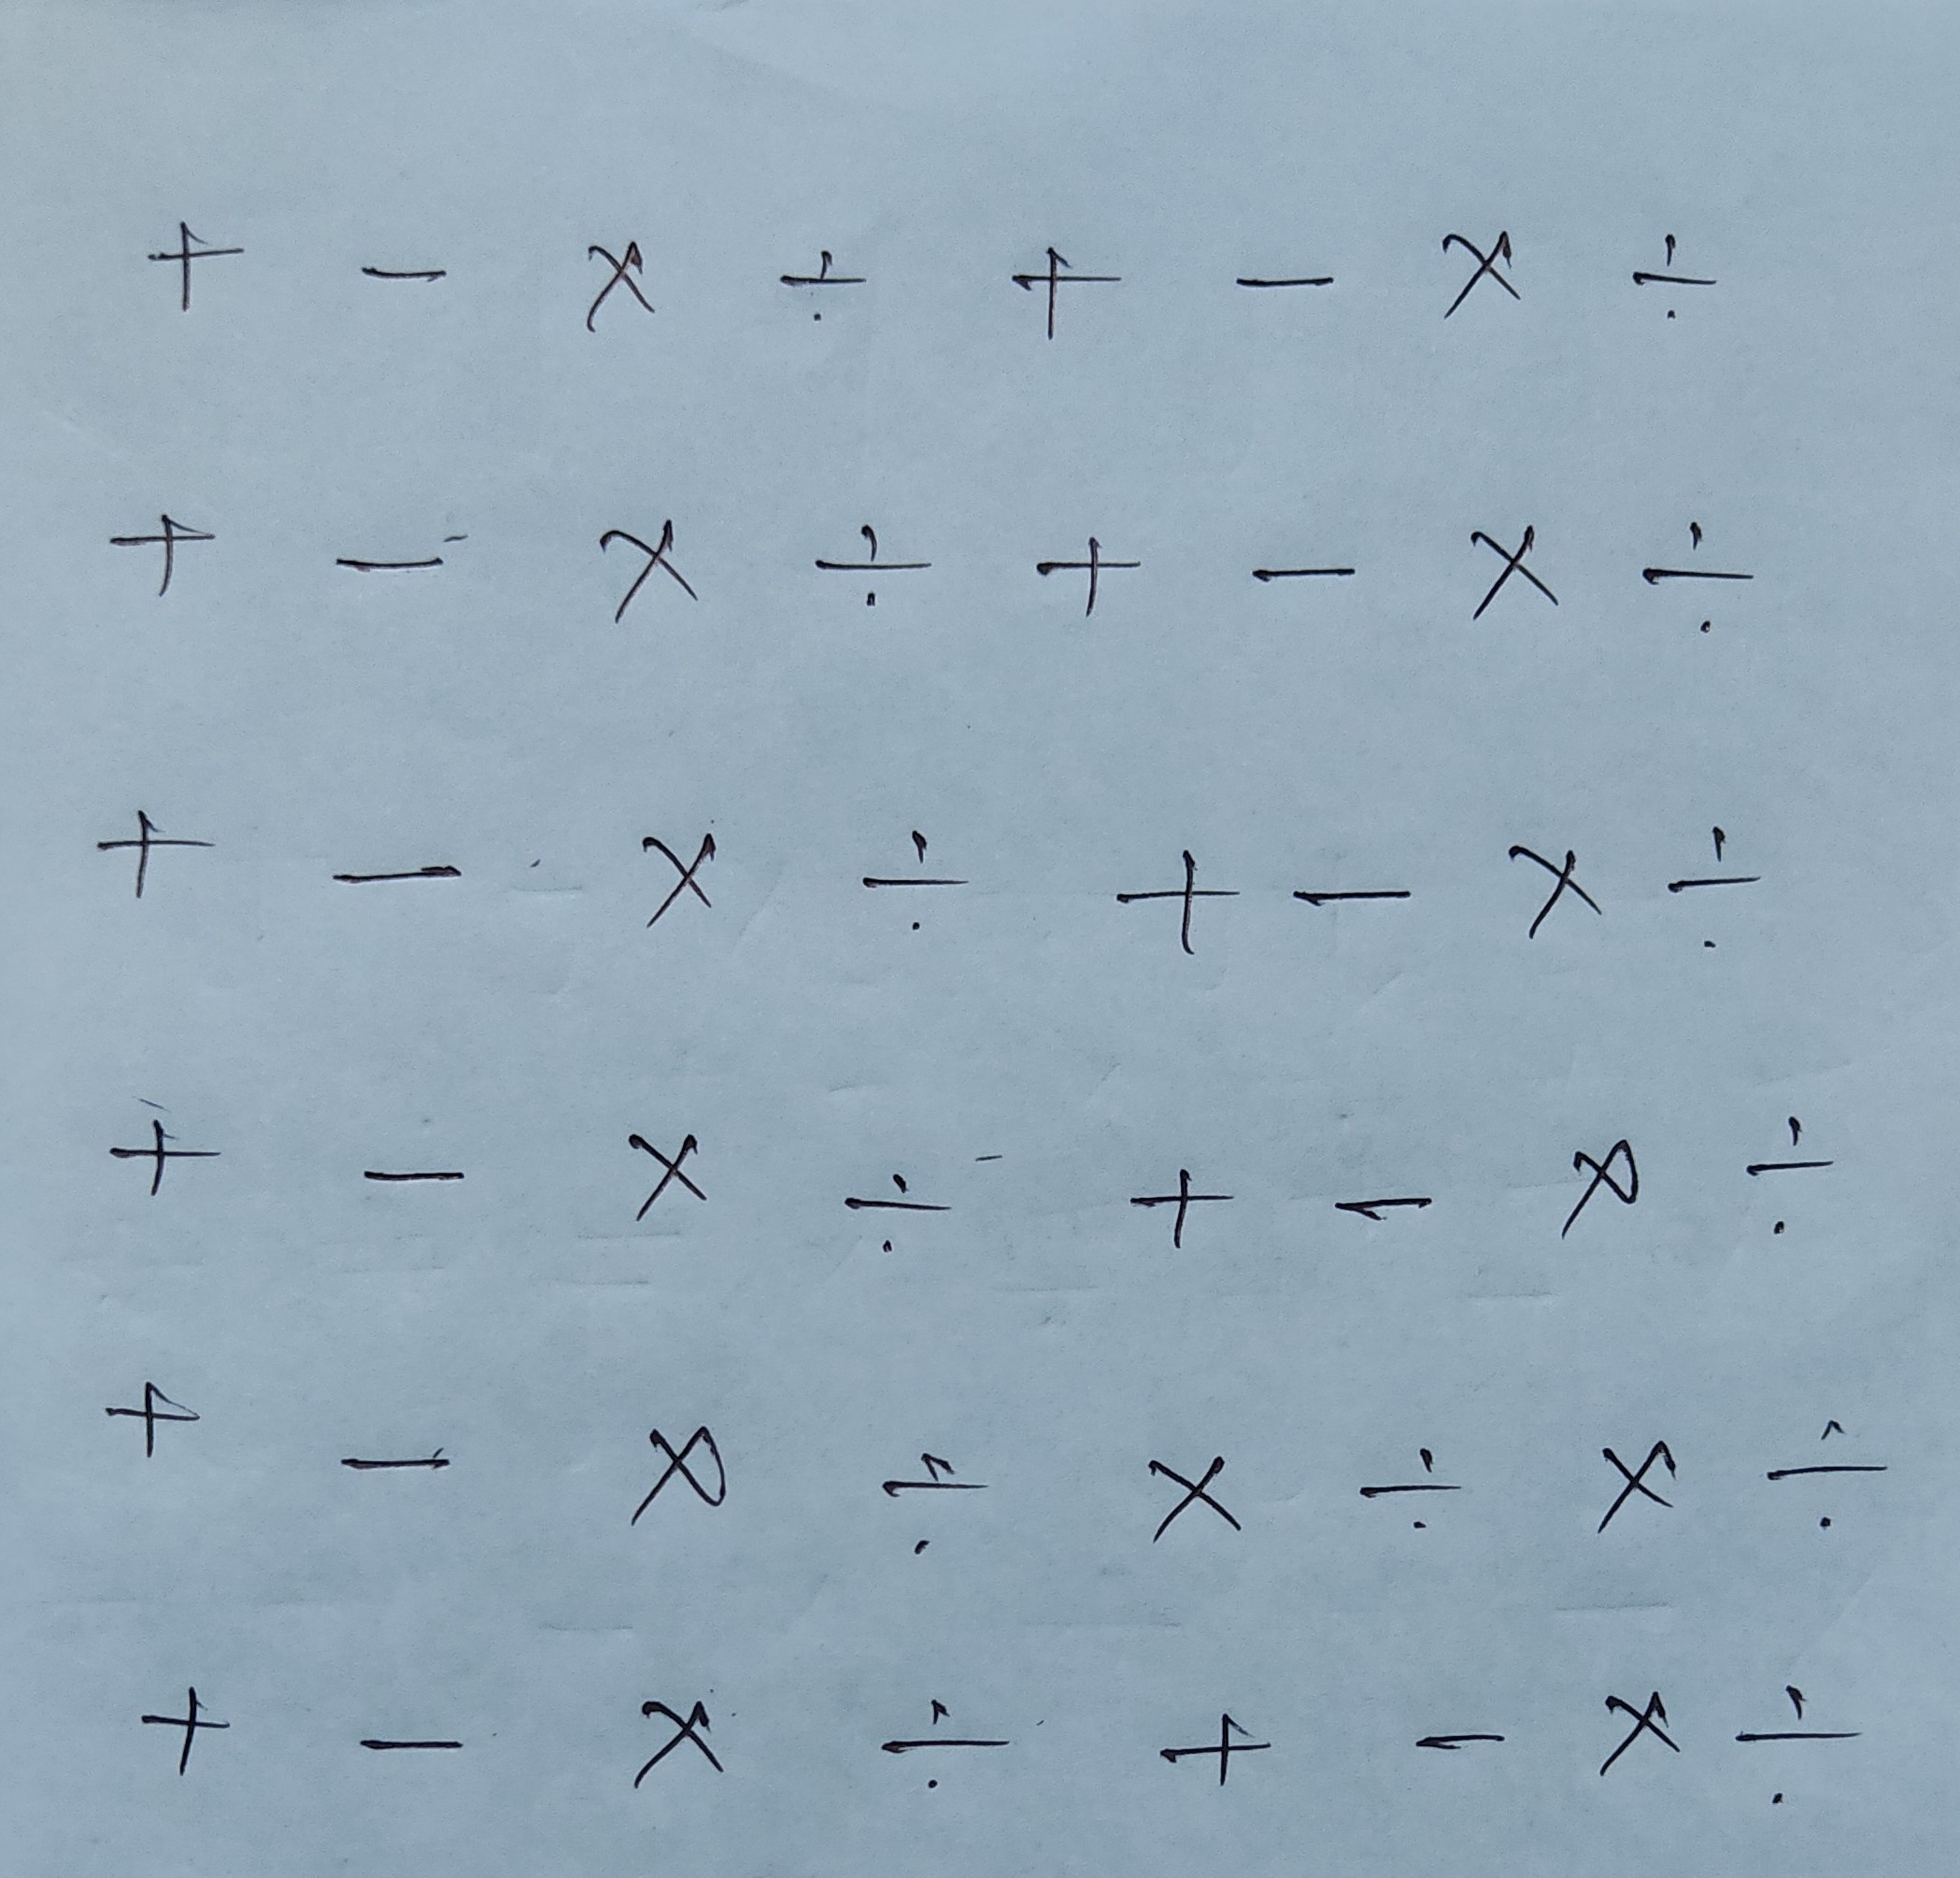 + − × ÷ + − × ÷
+ − × ÷ + − × ÷
+ − × ÷ + − × ÷
+ − × ÷ + − × ÷
+ − × ÷ × ÷ × ÷
+ − × ÷ + − × ÷